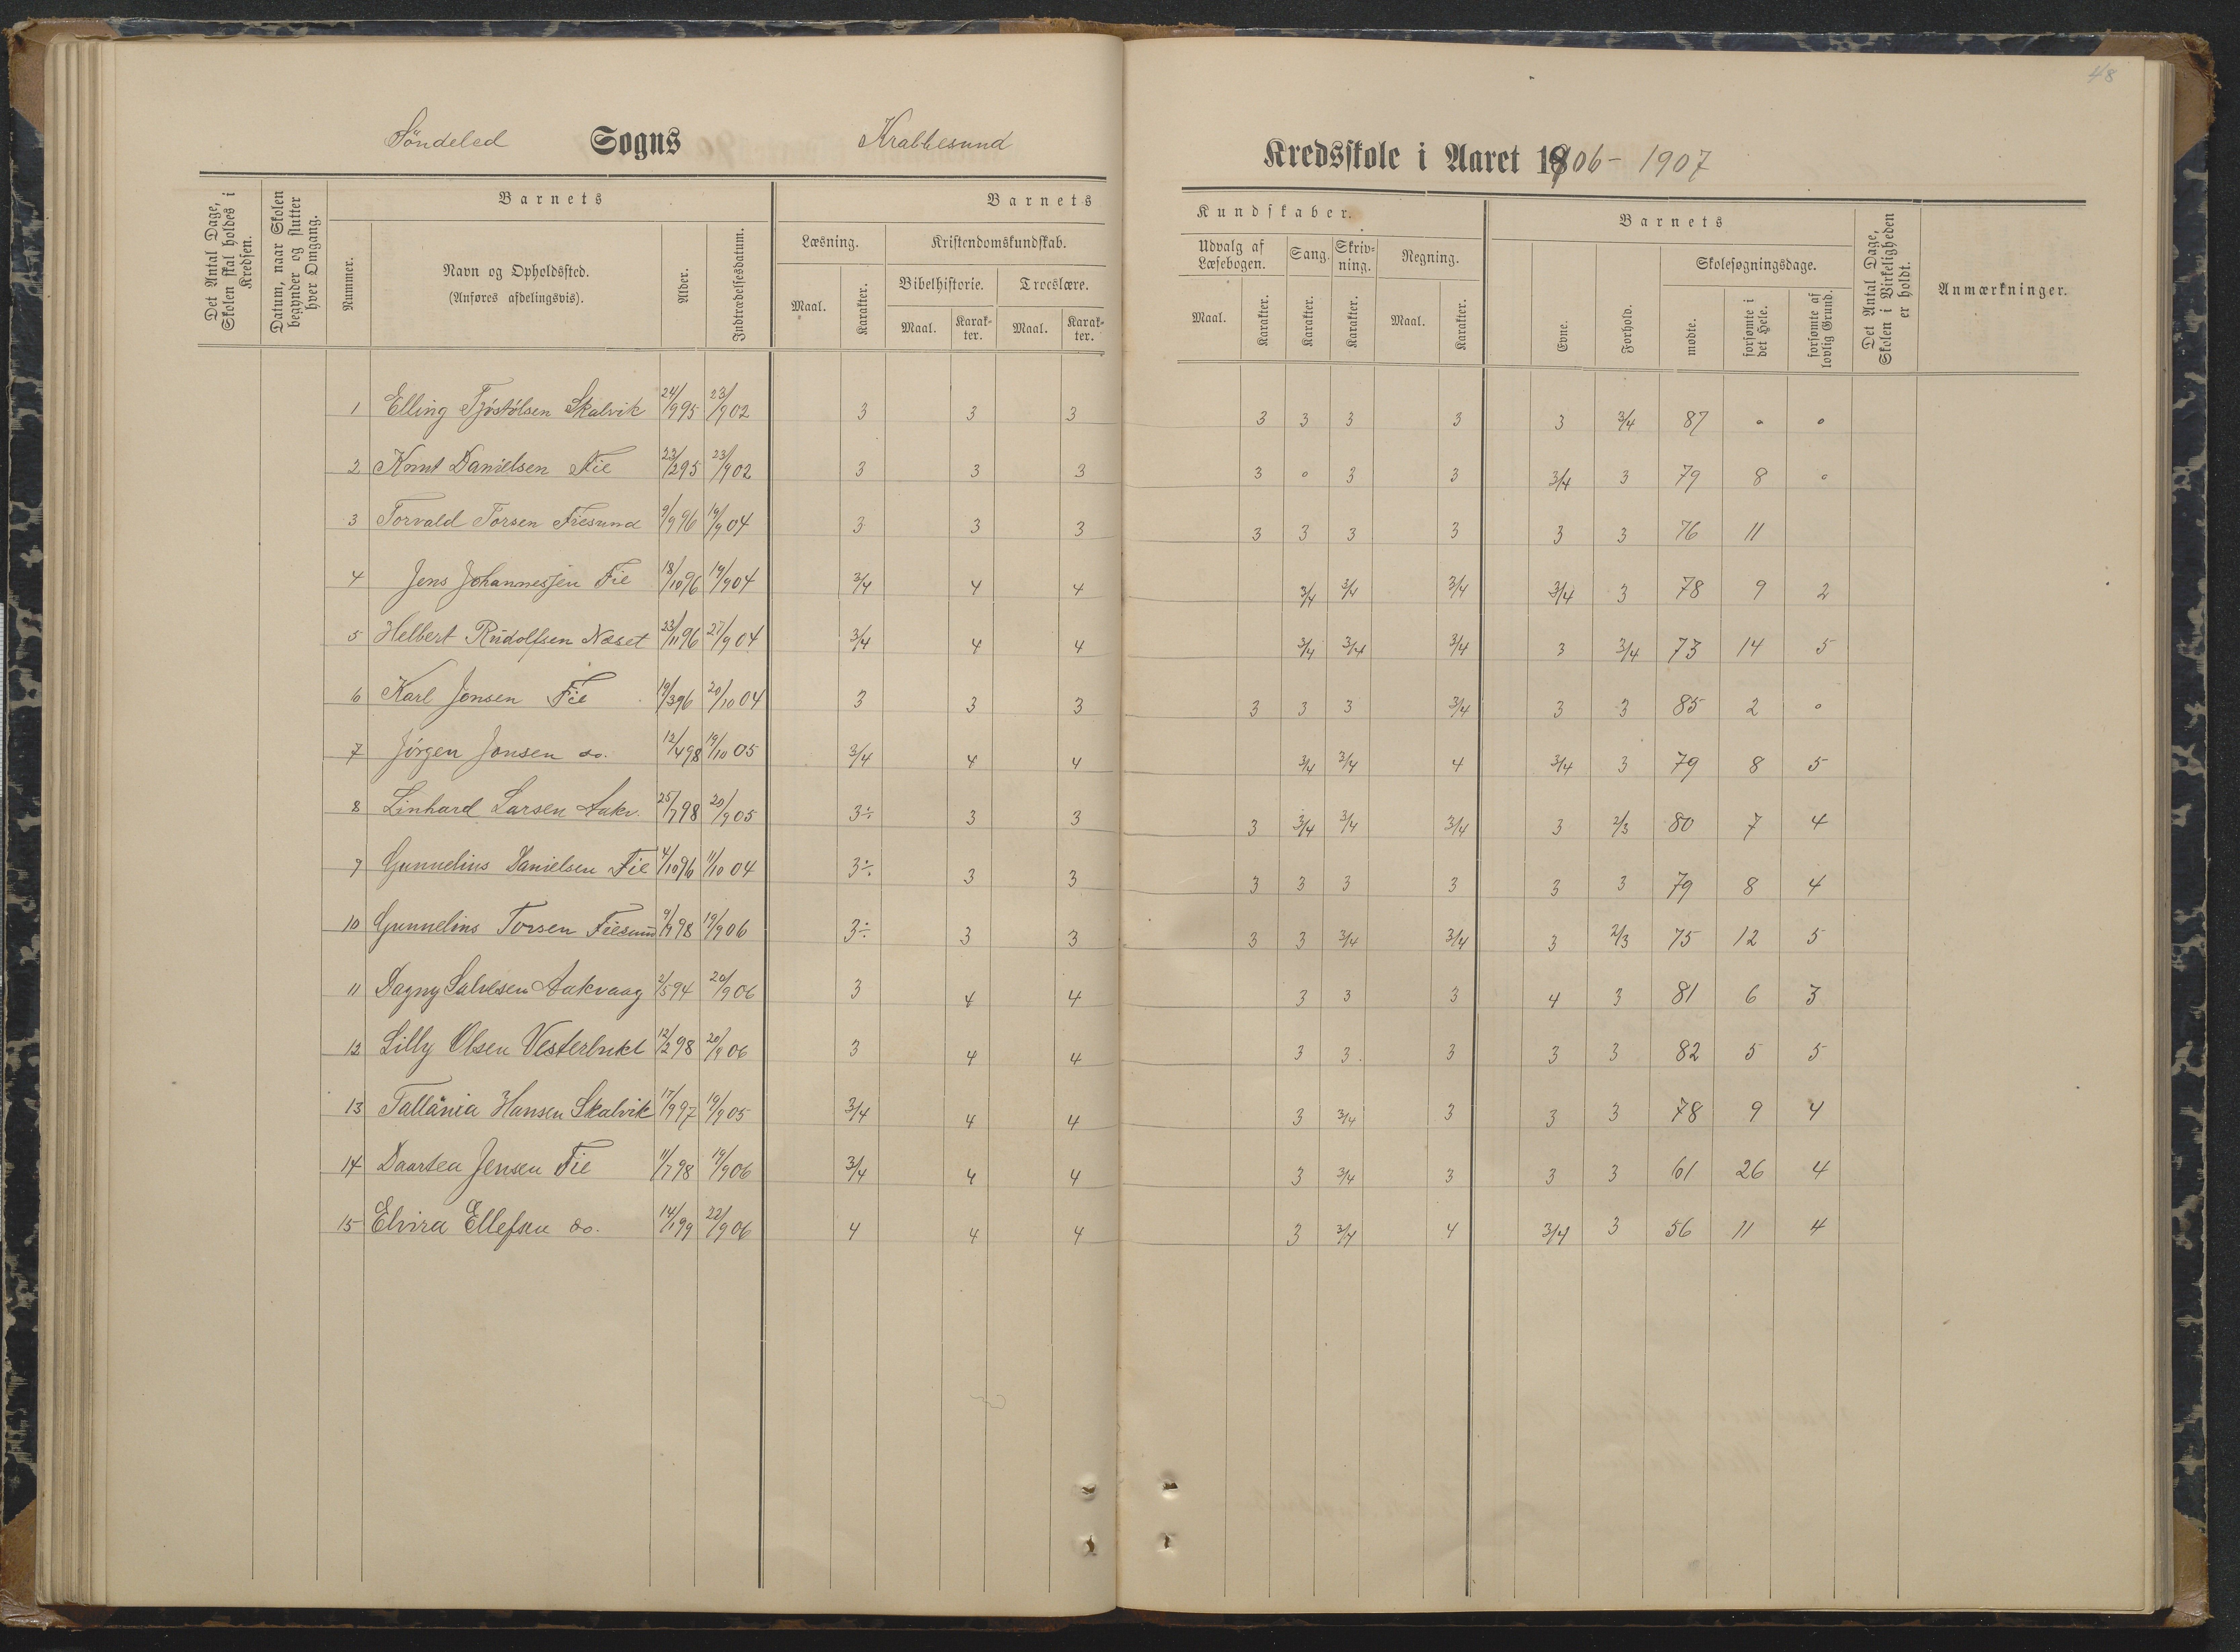 48
Söndeled Sogns Krabbesund Kredsskole i Aaret 1906-1907
Det Antal Dage, Skolen skal holdes i Kredsen.
Datum, naar Skolen begynder og slutter hver Omgang.
Barnets
Nummer.
Navn og Opholdssted.
(Anføres afdelingsvis).
Alder.
Indtrædelsesdatum.
Barnets Kundskaber.
Læsning.
Maal. Karakter.
Kristendomskundskab.
Bibelhistorie. Troeslære.
Maal. Karakter. Maal. Karakter.
Udvalg af Læsebogen.
Maal. Karakter.
Sang.
Karakter.
Skrivning.
Karakter.
Regning.
Maal. Karakter.
Barnets
Evne.
Forhold.
Skolesøgningsdage.
mødte.
forsømte i det Hele.
forsømte af lovlig Grund.
Det Antal Dage, Skolen i Virkeligheden er holdt.
Anmærkninger.
1 Elling Tjöstölsen Skalvik 24/9 95 23/9 02 3 3 3 3 3 3 3 3 3/4 87 0 0
2 Knut Danielsen Fie 23/2 95 23/9 02 3 3 3 3 0 3 3 3/4 3 79 8 0
3 Torvald Torsen Fiesund 9/9 96 19/9 04 3 3 3 3 3 3 3 3 3 76 11
4 Jens Johannesjen Fie 18/10 96 19/9 04 3/4 4 4 3/4 3/4 3/4 3/4 3 78 9 2
5 Helbert Rudolfsen Næset 23/11 96 27/9 04 3/4 4 4 3/4 3/4 3/4 3 3/4 73 14 5
6 Karl Jonsen Fie 19/3 96 20/10 04 3 3 3 3 3 3 3/4 3 3 85 2 0
7 Jörgen Jonsen do. 12/4 98 19/10 05 3/4 4 4 3/4 3/4 4 3/4 3 79 8 5
8 Linhard Larsen Aakv. 25/7 98 20/9 05 3÷ 3 3 3 3/4 3/4 3/4 3 2/3 80 7 4
9 Gunnelius Danielsen Fie 4/10 96 11/10 04 3÷ 3 3 3 3 3 3 3 3 79 8 4
10 Gunnelius Torsen Fiesund 9/9 98 19/9 06 3÷ 3 3 3 3 3/4 3/4 3 2/3 75 12 5
11 Dagny Salvesen Aakvaag 2/5 94 20/9 06 3 4 4 3 3 3 4 3 81 6 3
12 Lilly Olsen Vesterbukt 12/2 98 20/9 06 3 4 4 3 3 3 3 3 82 5 5
13 Tallania Hansen Skalvik 17/9 97 19/9 05 3/4 4 4 3 3/4 3 3 3 78 9 4
14 Daartea Jensen Fie 11/7 98 19/9 06 3/4 4 4 3 3/4 3 3 3 61 26 4
15 Elvira Ellefsen do. 14/1 99 22/9 06 4 4 4 3 3/4 4 3/4 3 56 11 4